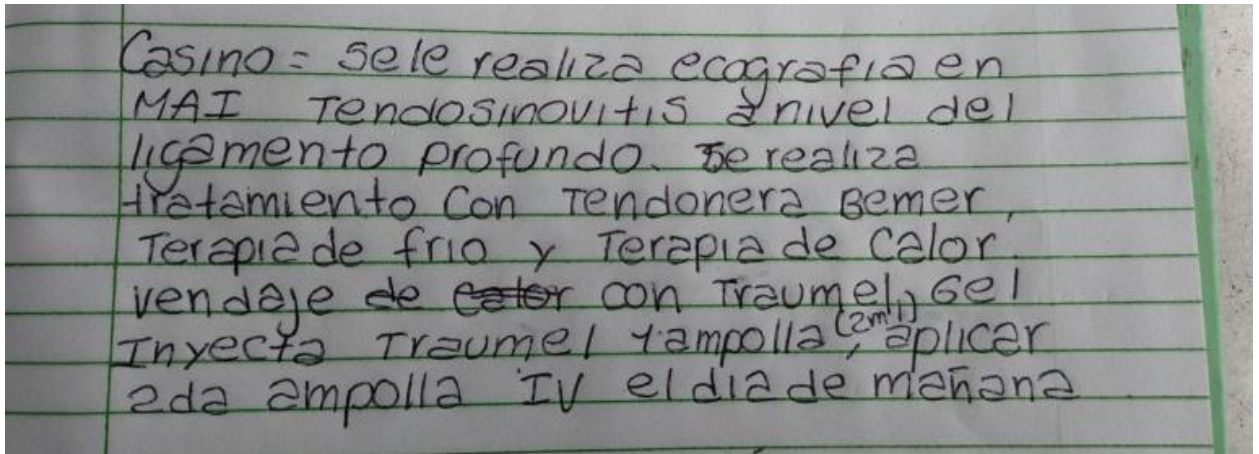 Casino = Se le realiza ecografia en
MAI Tendosinovitis a nivel del
ligamento profundo. Se realiza
tratamiento con Tendonera Bemer,
Terapia de frio y Terapia de calor.
vendaje de calor con Traumel, Gel
Inyecta Traumel 1 ampolla (2ml), aplicar
2da ampolla IV el dia de mañana